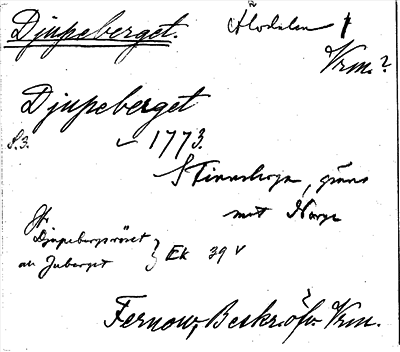 Djupeberget. Älvdalen
Vrm.?
Djupeberget
s. 3. 1773.
Finnskoga, gräns
mot Norge
Jfr
Djupebergsröset
au Juberget } Ek 39 v
Fernow, Beskr. öfv. Vrm.